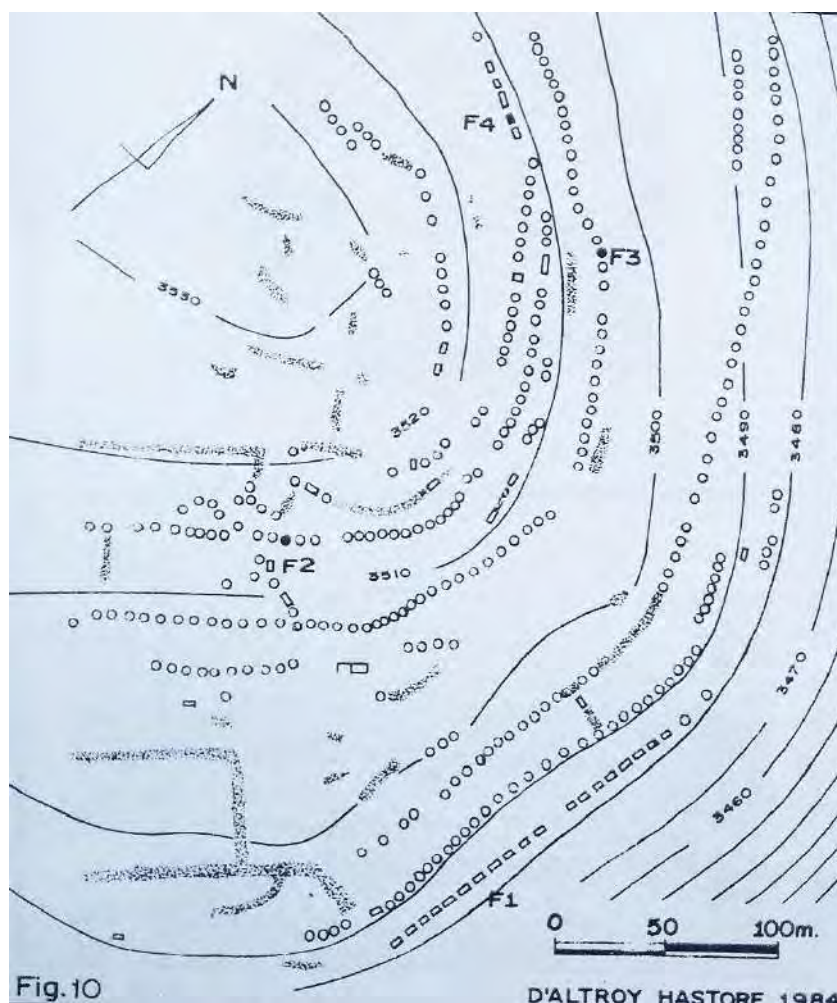 N
F4
F3
3530
3520
3500
3490
3480
F2
3510
3470
3460
F1
0 50 100m.
Fig.10
D'ALTROY HASTORF 1984